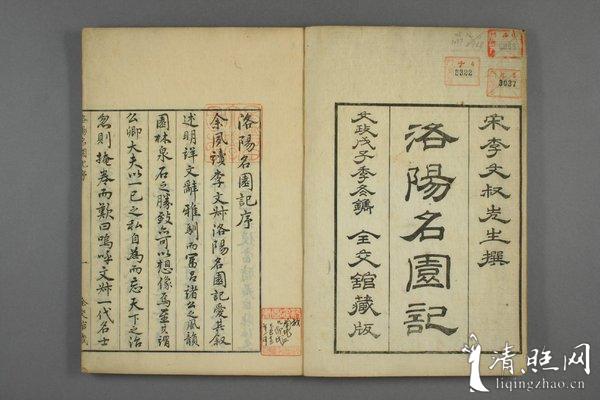 宋李文叔先生撰
洛陽名園記
文政戊子季冬鐫 全交舘藏版
洛陽名園記序
余夙讀李文叔洛陽名園記愛其叙
述明詳文辭雅馴而富呂諸公之風韻
園林泉石之勝致亦可以想像焉並其謂
公卿大夫以一已之私自為而忘天下之治
忽則掩卷而歎曰嗚呼文叔一代名士
3322
3037
清照网
liqingzhao.cn